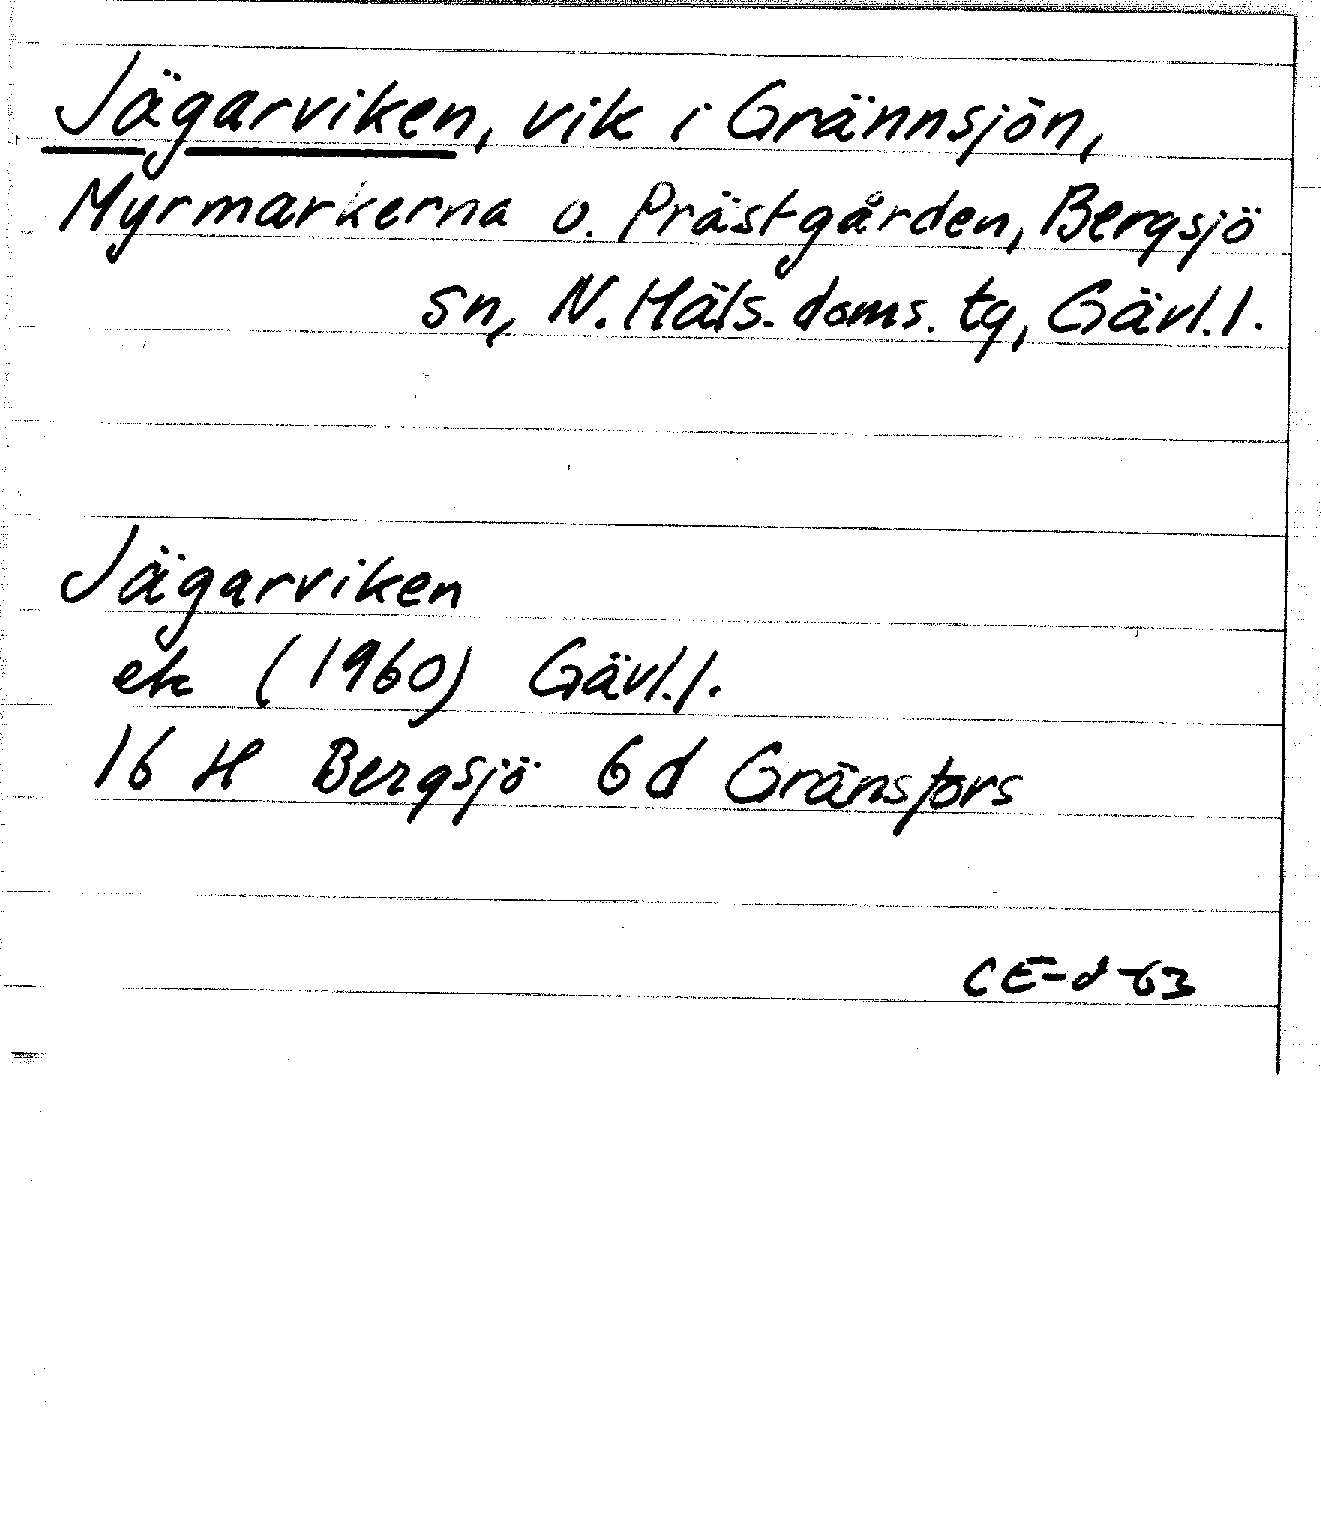 Jägarviken, vik i Grännsjön,
Myrmarkerna o. Prästgården, Bergsjö
sn, N. Häls. doms. tg, Gävl. l.
Jägarviken
ek (1960) Gävl. l.
16 H Bergsjö 6d Gränsfors
CE-d-63